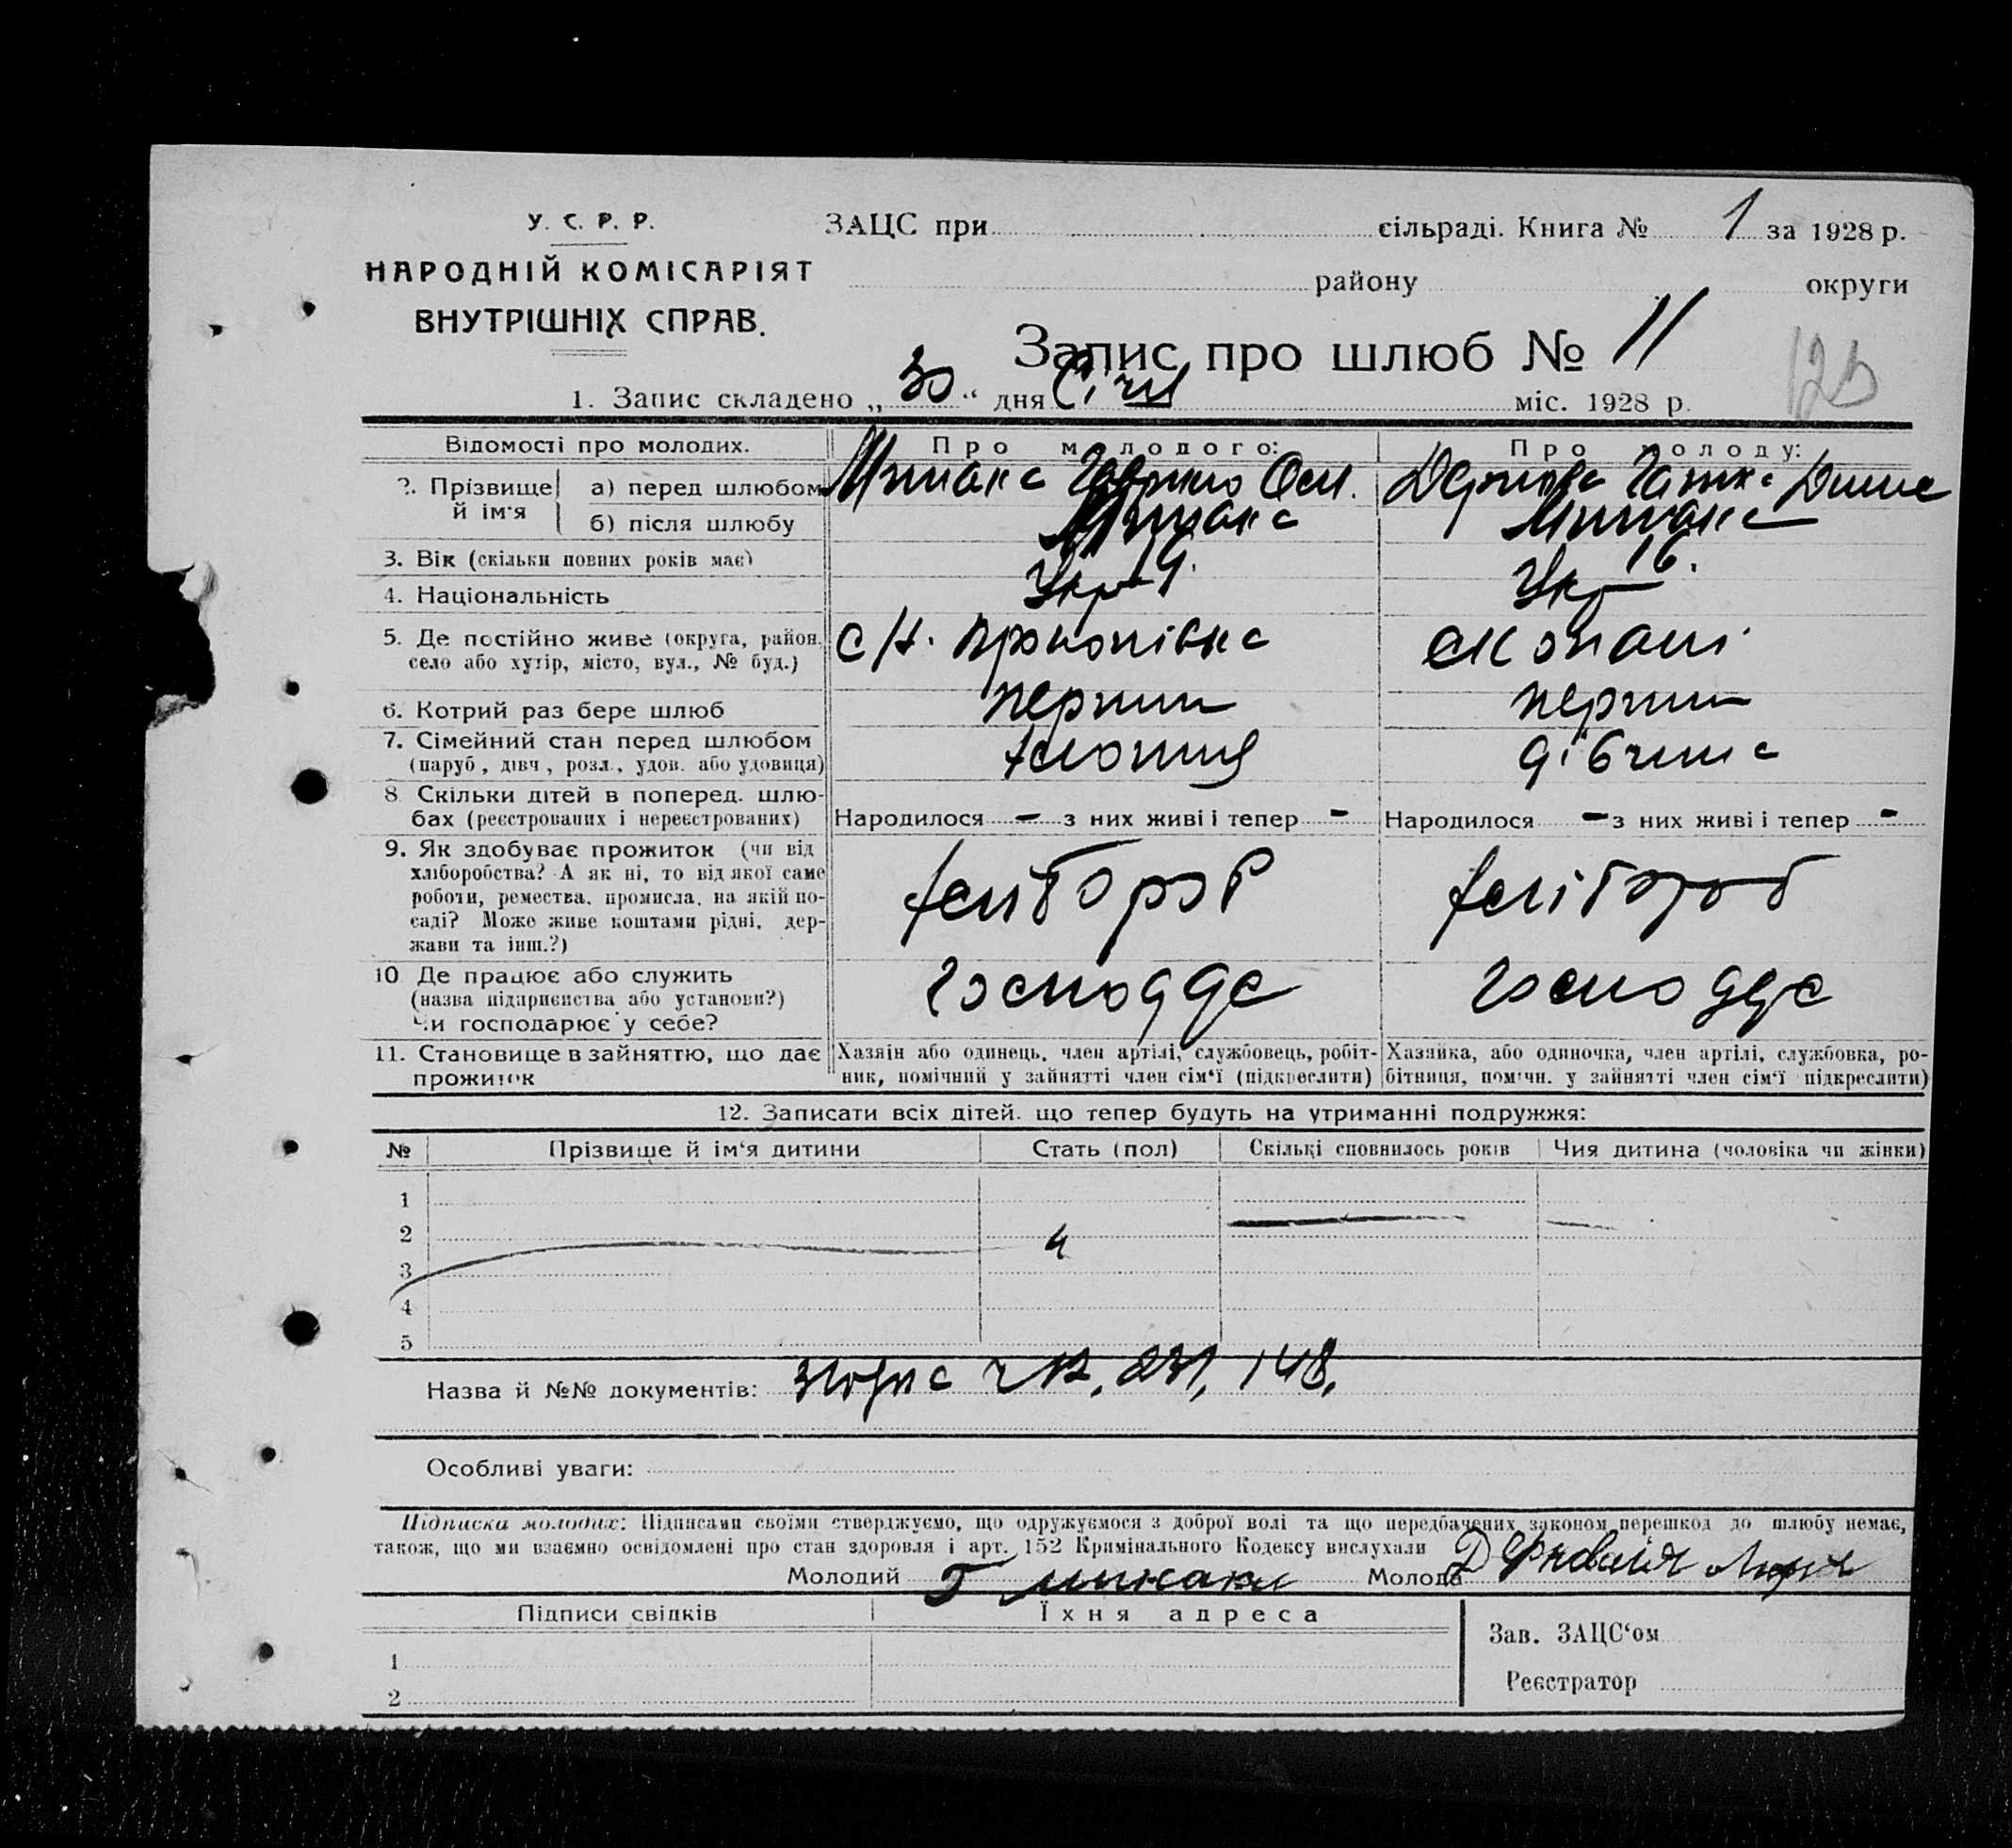 У. С. Р. Р.
НАРОДНІЙ КОМІСАРІЯТ
ВНУТРІШНІХ СПРАВ.
ЗАЦС при сільраді. Книга № 1 за 1928 р.
району округи
Запис про шлюб № 11
1. Запис складено „ 30 “ дня Січн міс. 1928 р.
Відомості про молодих. Про молодого: Про молоду:
2. Прізвище й ім'я а) перед шлюбом
б) після шлюбу
3. Вік (скільки повних років має) 19. 16.
4. Національність Укр Укр
5. Де постійно живе (округа, район, село або хутір, місто, вул., № буд.) Прокопівка скопані
6. Котрий раз бере шлюб перший перший
7. Сімейний стан перед шлюбом
(паруб, дівч, розл., удов. або удовиця) хлопиць дівчина
8 Скільки дітей в поперед. шлю-
бах (реєстрованих і нереєстрованих) Народилося – з них живі і тепер - Народилося – з них живі і тепер -
9. Як здобуває прожиток (чи від
хліборобства? А як ні, то від якої саме
роботи, ремества, промисла, на якій по-
саді? Може живе коштами рідні, дер-
жави та інш.?) хлібороб хлібороб
10 Де працює або служить
(назва підприємства або установи?)
Чи господарює у себе?
11. Становище в зайняттю, що дає
прожиток
Хазяін або одинець, член артілі, службовець, робіт-
ник, помічний у зайнятті член сім'ї (підкреслити)
Хазяйка, або одиночка, член артілі, службовка, ро-
бітниця, помічн. у зайнятті член сім'ї підкреслити)
12. Записати всіх дітей. що тепер будуть на утриманні подружжя:
№ Прізвище й ім'я дитини Стать (пол) Скількі сповнилось років Чия дитина (чоловіка чи жінки)
1
2
3
4
5
Назва й №№ документів: 231, 148,
Особливі уваги:
Підписка молодих: Підписами своїми стверджуємо, що одружуємося з доброї волі та що передбачених законом перешкод до шлюбу немає,
також, що ми взаємно освідомлені про стан здоровля і арт. 152 Кримінального Кодексу вислухали
Молодий Молода
Підписи свідків Їхня адреса
Зав. ЗАЦС'ом
1
Реєстратор
2